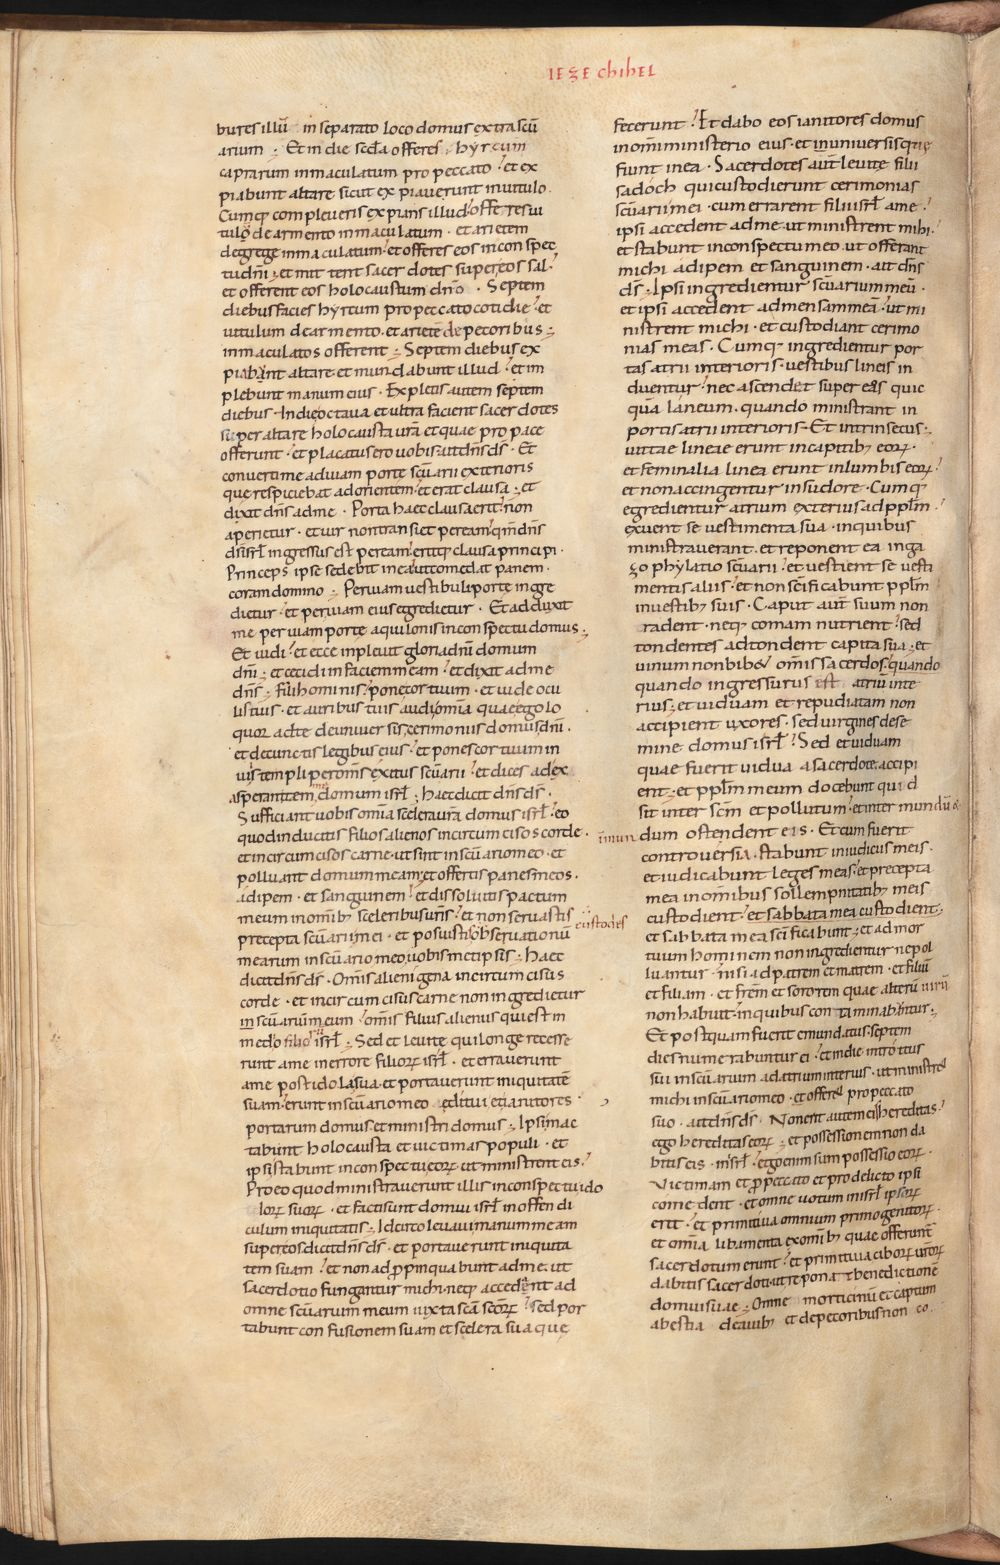 IEZE chihEL
bures illū in separato loco domus extra scū
arium ; Et in die scđa offeres · hyrcum
caprarum inmaculatum pro peccato ! et ex
piabunt altare sicut expiauerunt inuitulo ·
Cumq; compleueris expians illud offeres ui
tulū de armento inmaculatum · et arietem
de grege inmaculatum · et offeres eos in conspec
tu dn̄i ; et mittent sacerdotes super eos sal ·
et offerent eos holocaustum dn̄o · Septem
diebus facies hyrcum pro peccato cotidie ! et
uitulum de armento · et arietē de pecoribus ;
inmaculatos offerent ; Septem diebus ex
piabunt altare et mundabunt illud · et im
plebunt manum eius · Expletis autem septem
diebus · In die octaua et ultra facient sacerdotes
super altare holocausta urā et quae pro pace
offerunt · et placatus ero uobis · ait dn̄s ds̄ · Et
conuerti me ad uiam porte scūarii exterioris
que respiciebat ad orientem ! et erat clausa ; et
dixit dn̄s ad me · Porta haec clausa erit ! non
aperietur · et uir non transiet per eam ! qm̄ dn̄s
ds̄ isrl̄ ingressus est per eam ! eritq; clausa principi ·
Princeps ipse sedebit in ea ! ut comedat panem ·
coram domino ; Per uiam uestibuli porte ingre
dietur ! et per uiam eius egredietur · Et adduxit
me per uiam porte aquilonis in conspectu domus ;
Et uidi ! et ecce inpleuit gloria dn̄i domum
dn̄i ; et cecidi in faciem meam ! et dixit ad me
dn̄s ; Fili hominis ! pone cor tuum · et uide ocu
lis tuis · et auribus tuis audi omīa quae ego lo
quor ad te de uniuersis cerimoniis domus dn̄i ·
et de cunctis legibus eius · et pones cor tuum in
uiis templi per omīs exitus scūarii ! et dices ad ex
asperantem me domum isrl̄ ; haec dicit dn̄s ds̄ ·
Sufficiant uobis omīa scelera urā domus isrl̄ ! eo
quod inducitis filios alienos incircumcisos corde ·
et incircumcisos carne · ut sint in scūario meo · et
polluant domum meam · et offertis panes meos ·
adipem · et sanguinem ! et dissoluitis pactum
meum in omīb; sceleribus urīs ! et non seruastis
precepta scūarii mei · et posuistis obseruationū custodes
mearum in scūario meo uobismetipsis ; Haec
dicit dn̄s ds̄ · Omīs alienigena incircumcisus
corde · et incircumcisus carne non ingredietur
in scūarium eum ! omīs filius alienus qui est in
medio filiorū isrl̄ ; Sed et leuite qui longe recesse
runt a me in errore filiorꝝ isrl̄ · et errauerunt
a me post idola sua · et portauerunt iniquitatē
suam · erunt in scūario meo editui et ianitores ·
portarum domus et ministri domus ; Ipsi mac
tabunt holocausta et uictimas populi · et
ipsi stabunt in conspectu eorꝝ · ut ministrent eis !
Pro eo quod ministrauerunt illis in conspectu ido
lorꝝ suorꝝ · et facti sunt domui isrl̄ in offendi
culum iniquitatis ; Idcirco leuaui manum meam
super eos dicit dn̄s ds̄ · et portauerunt iniquita
tem suam ! et non ad ppinquabunt ad me · ut
sacerdotio fungantur michi · neq; accedent ad
omne scūarium meum iuxta scā scōrꝝ ! sed por
tabunt confusionem suam et scelera sua que
fecerunt ! Et dabo eos ianitores domus
in om̄i ministerio eius · et in uniuersis que
fiunt in ea · Sacerdotes aut̄ leuite filii
sadoch qui custodierunt cerimonias
scūarii mei · cum errarent filii isrl̄ a me !
ipsi accedent ad me · ut ministrent mihi ·
et stabunt in conspectu meo · ut offerant
michi adipem et sanguinem · ait dn̄s
ds̄ ; Ipsi ingredientur scūarium meū ·
et ipsi accedent ad mensam meā ! ut mi
nistrent michi · et custodiant cerimo
nias meas · Cumq; ingredientur por
tas atrii interioris · uestibus lineis in
duentur ! nec ascendet super eas quic
quā laneum · quando ministrant in
portis atrii interioris · Et intrinsecus ;
uittae lineae erunt in capitib; eorꝝ ·
et feminalia linea erunt in lumbis eorꝝ !
et non accingentur in sudore · Cumq;
egredientur atrium exterius ad pplm̄ ·
exuent se uestimenta sua · in quibus
ministrauerant · et reponent ea in ga
zophylatio scūarii ! et uestient se uesti
mentis aliis ! et non scīficabunt pplm̄
in uestib; suis · Caput aut̄ suum non
radent · neq; comam nutrient ! sed
tondentes adtondent capita sua ; et
uinum non bibet omīs sacerdos · quando
quando ingressurus est atriū inte
rius ; et uiduam et repudiatam non
accipient uxores · sed uirgines de se
mine domus isrl̄ ! Sed et uiduam
quae fuerit uidua a sacerdote accipi
ent ; et pplm̄ meum docebunt quid
sit inter scm̄ et pollutum ! et inter mundū &
īmun dum ostendent eis · Et cum fuerit
controuersia · stabunt in iudiciis meis ·
et iudicabunt · leges meas · et precepta
mea in omnibus sollempnitatib; meis
custodient ! et sabbata mea custodient ;
et sabbata mea scīficabunt ; et ad mor
tuum hominem non ingredientur ne pol
luantur · nisi ad patrem et matrem · et filiū
et filiam · et frēm et sororem quae alterū uirū
non habuit · in quibus contaminabitur ;
Et postquam fuerit emundatus · septem
dies numerabuntur ei ! et in die introitus
sui in scūarium ad atrium interius · ut ministret
michi in scūario meo · et offeret pro peccato
suo · ait dn̄s ds̄ · Non erit autem eis hereditas !
ego hereditas eorꝝ ; et possessionem non da
bitis eis · in isrl̄ ! ego enim sum possessio eorꝝ ·
Victimam et p peccato et pro delicto ipsi
comedent · et omne uotum in isrl̄ ipsorꝝ
erit ! et primitiua omnium primogenitorꝝ ·
et omīa libamenta ex omīb; quae offerunt̄
sacerdotum erunt ! et primitiua ciborꝝ urōrꝝ
dabitis sacerdoti · ut reponat benedictionē
domui suae ; Omne morticinū et captum
a bestia de auib; et de pecoribus non co